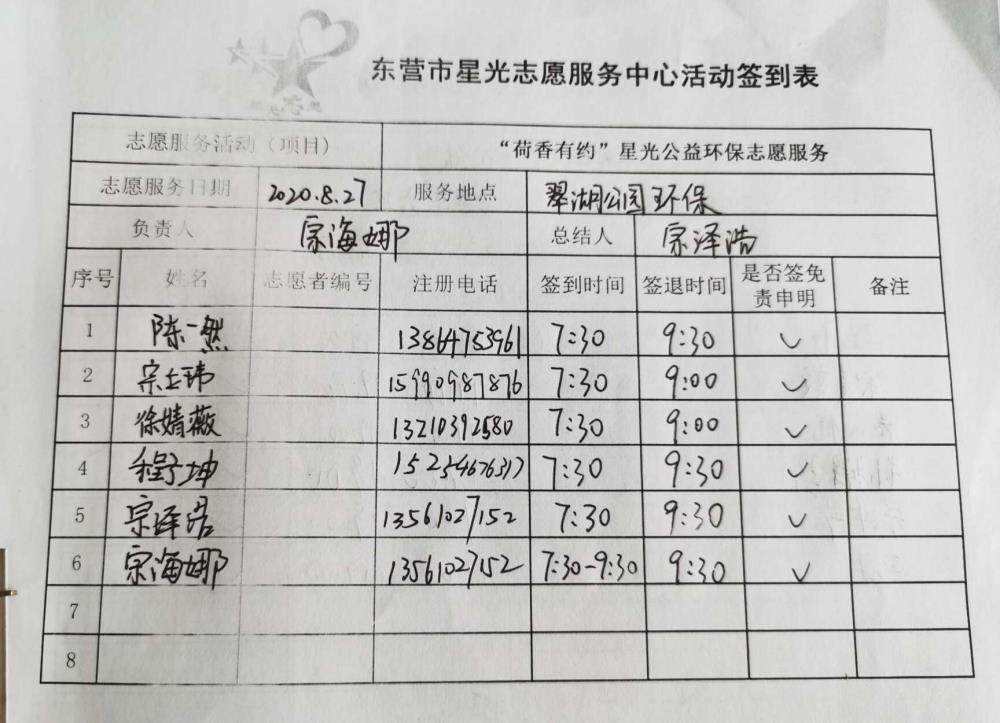 东营市星光志愿服务中心活动签到表
志愿服务活动（项目） “荷香有约”星光公益环保志愿服务
志愿服务日期 2020.8.27 服务地点 翠湖公园环保
负责人 宗海娜 总结人 宗泽浩
序号 姓名 志愿者编号 注册电话 签到时间 签退时间 是否签免责申明 备注
1 陈一然 13864753961 7:30 9:30 ✓
2 宗士玮 15990987876 7:30 9:00 ✓
3 徐婧薇 13210392580 7:30 9:00 ✓
4 程子坤 15254676317 7:30 9:30 ✓
5 宗泽 13561027152 7:30 9:30 ✓
6 宗海娜 13561027152 7:30-9:30 9:30 ✓
7
8